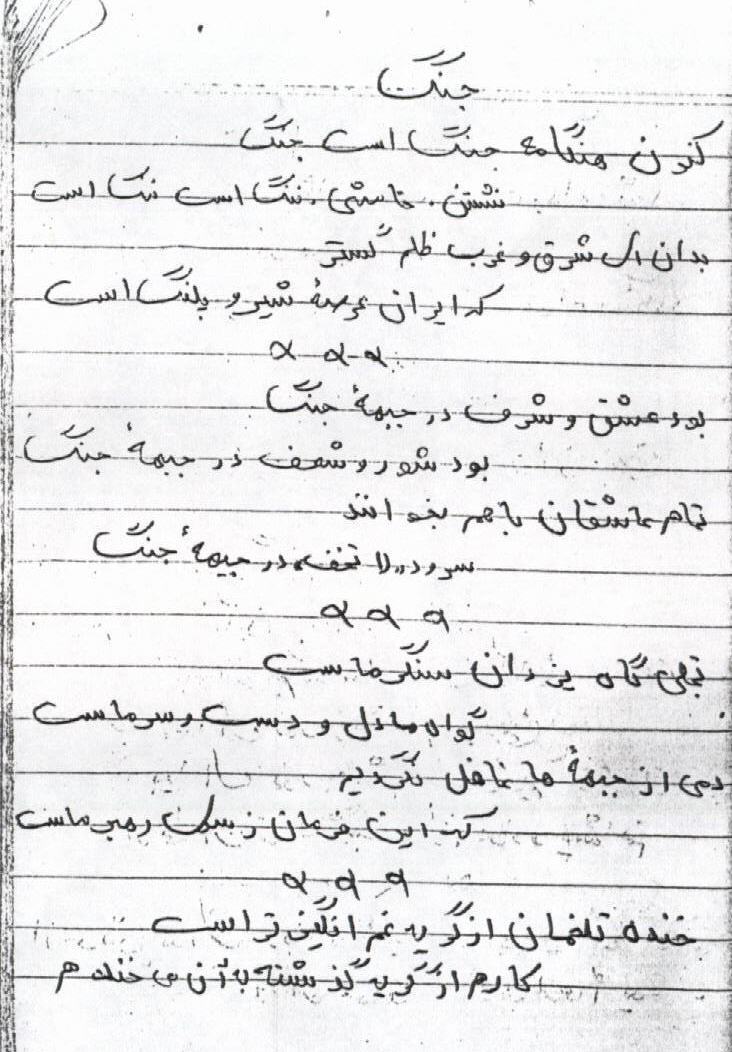 جنگ
کنون هنگامه جنگ است جنگ
نشستن، خامشی، ننگ است ننگ است
بدان ای شرق و غرب ظلم گستر
که ایران عرصهٔ شیر و پلنگ است
بود عشق و شرف در جبههٔ جنگ
بود شور و شعف در جبههٔ جنگ
تمام عاشقان با هم بخوانند
سرود لا تخف در جبههٔ جنگ
تجلی گاه یزدان سنگر ماست
گواه ما دل و دست و سر ماست
دمی از جبههٔ ما غافل نگردیم
که این فرمان ز رهبر ماست
خنده تلخمان از گریه غم انگیز تر است
کارم از گریه گذشته به آن می خندم